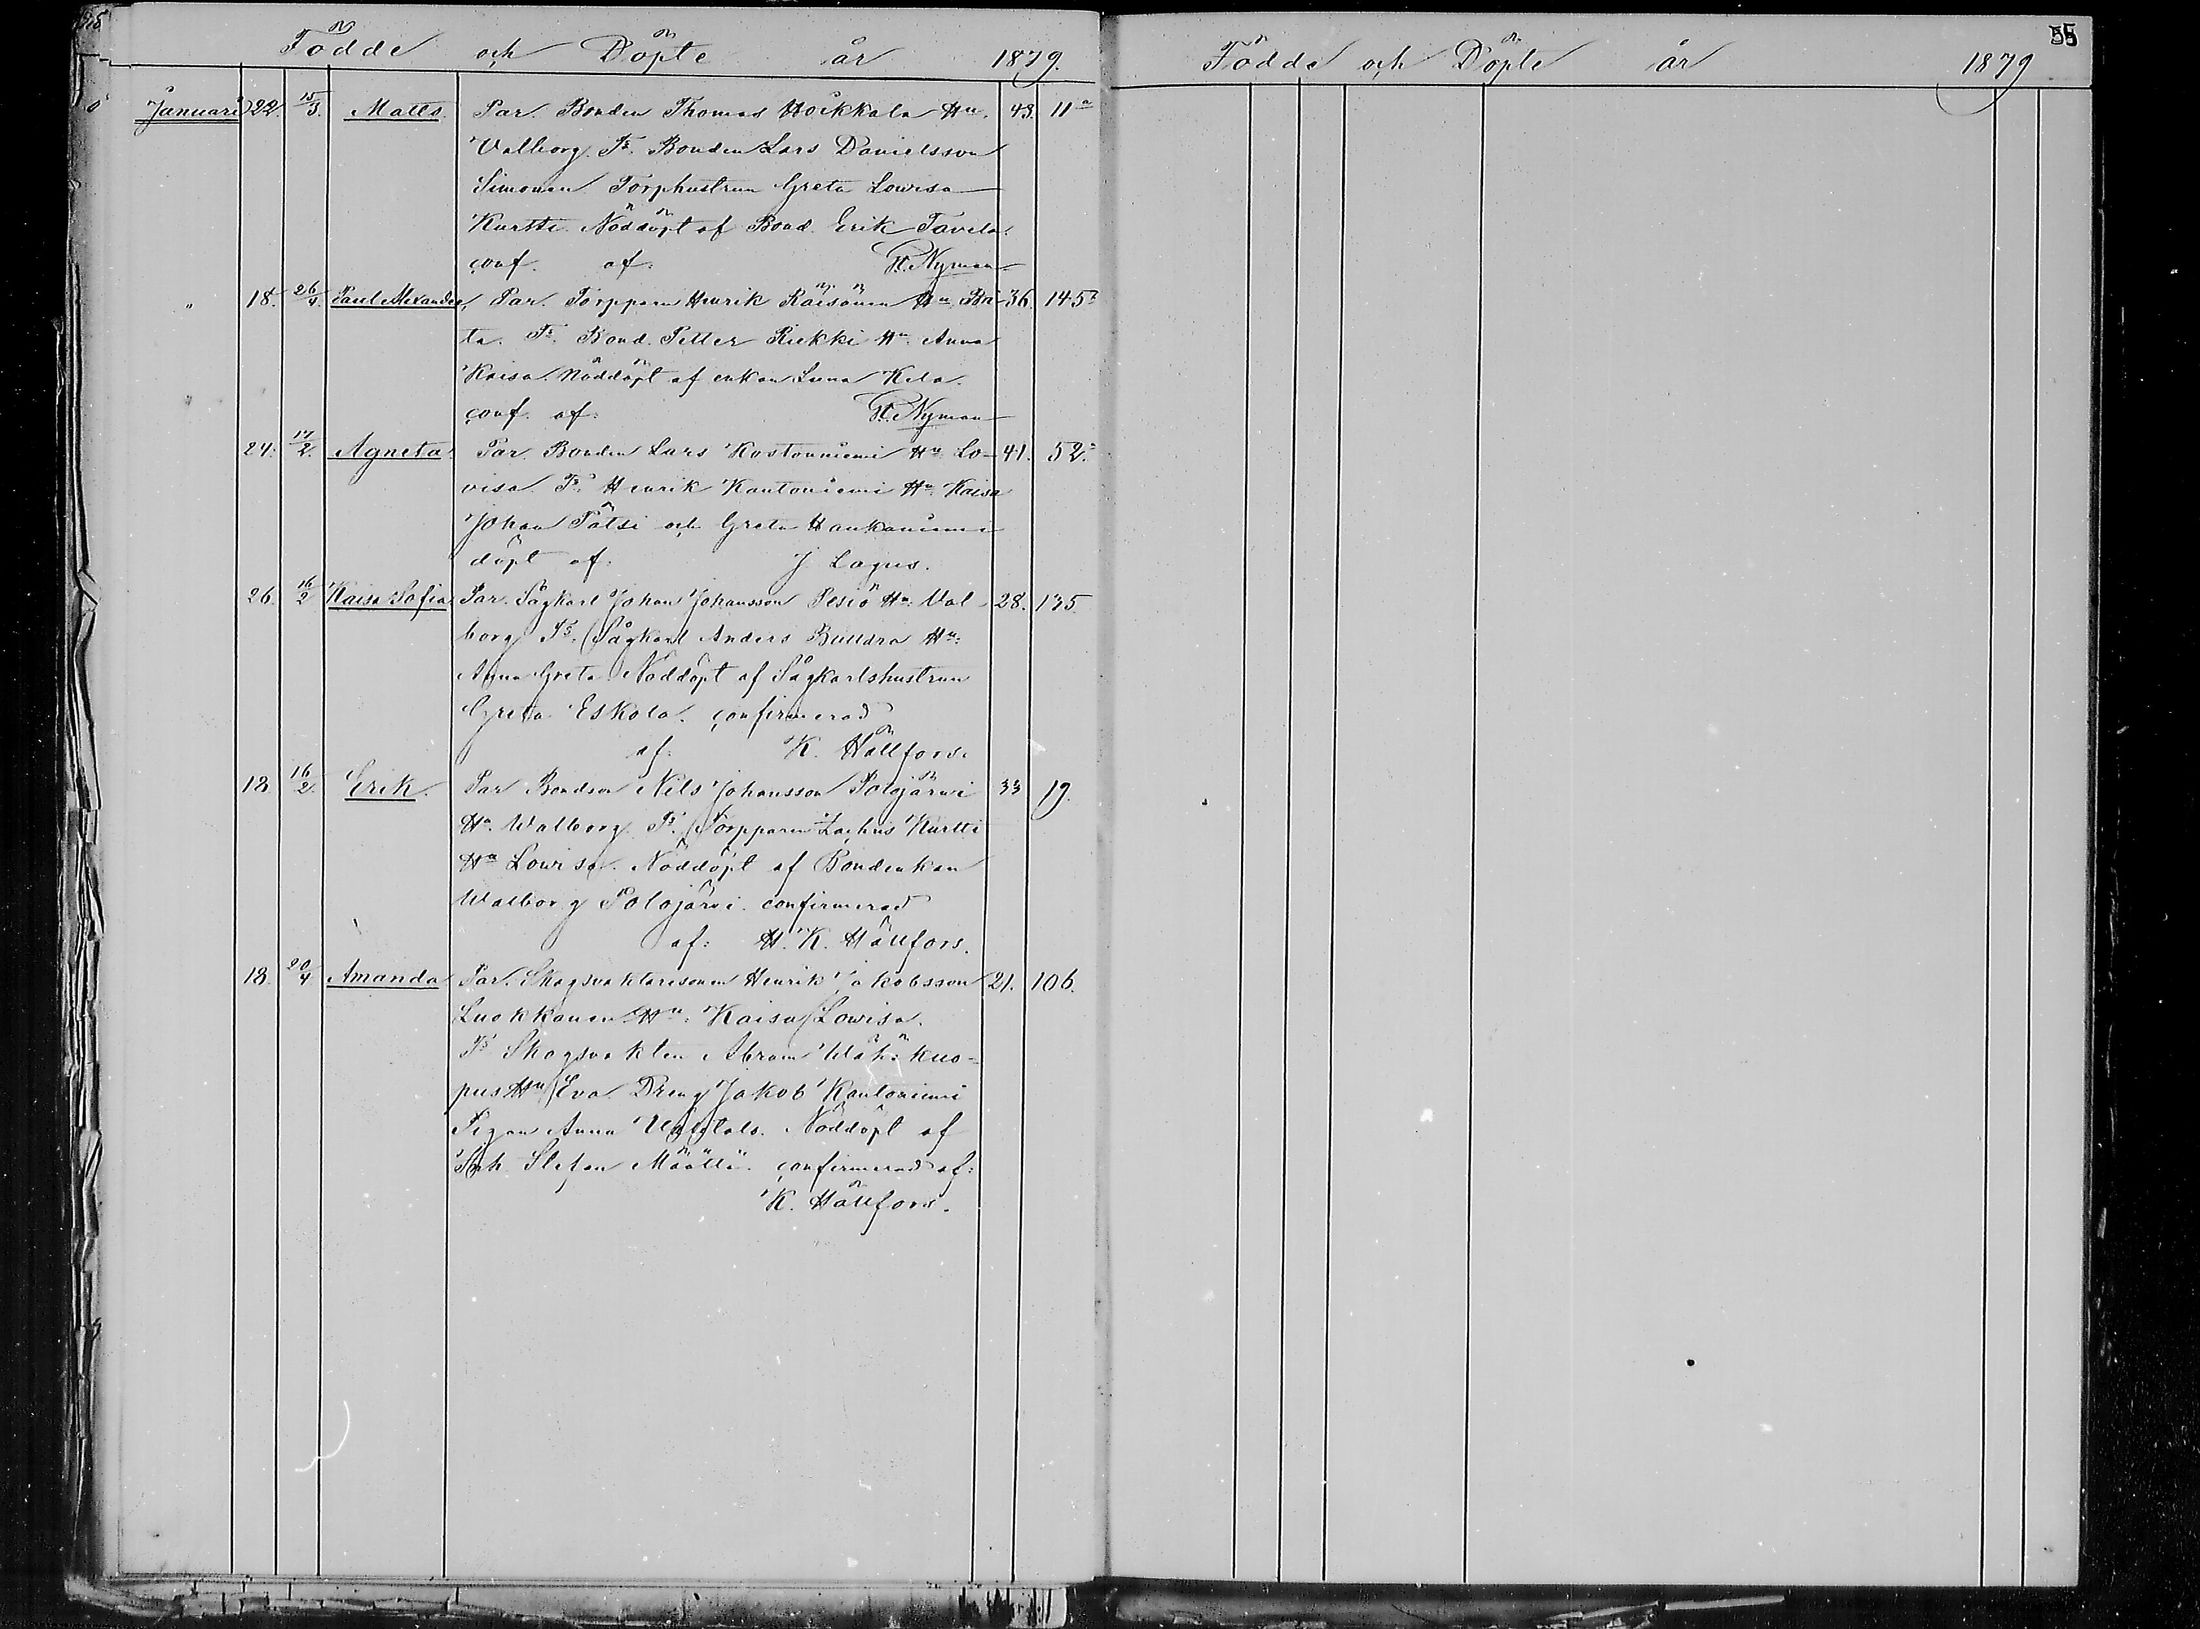 Födde och Döpte år 1879.
Januari 22. 15/3. Matts. Par. Bonden Thomas Hoikkala Hu. 43. 11a
Valborg. Fr. Bonden Lars Danielsson
Simonen Torphustrun Greta Lovisa
Kurtti. Nöddöpt af Bond. Erik Tavela.
conf. af: H. Nyman
" 18. 26/4. Paul Alexander, Par. Torpparn Henrik Räisänen Hu. Bri- 36. 145
ta. Fr. Bond. Petter Riekki Hu. Anna
Kaisa. Nöddöpt af enkan Kela.
conf. af: H. Nyman
24. 17/2. Agneta Par. Bonden Lars Kostonniemi Hu. Lo- 41. 52.
visa. Fr. Henrik Kantoniemi Hu. Kaisa
Johan Pätsi och Greta Haukaniemi
döpt af: J Lagus.
26. 16/2 Kaisa Sofia. Par. Sågkarl Johan Johansson Pesiö Hu. Val- 28. 135.
borg Fr. Sågkarl Anders Hu:
Anna Greta. Nöddöpt af Sågkarlshustrun
Greta Eskola. confirmerad
af. K. Hällfors.
18 16/2. Erik. Par Bondson Nils Johansson Polojärvi 33 19.
Hu. Walborg. Fr. Torpparen Zachris Kurtti
Hu Lovisa. Nöddöpt af Bondenkan
Walborg Polojärvi. confirmerad
af: H. K. Hällfors.
18. 20/4. Amanda Par. Skogsvaktaresonen Henrik Jakobsson 21. 106.
Luokkanen Hu: Kaisa Lovisa.
Fr Skogsvakten Abram Wähäkuo-
pus Hu Eva. Dreng Jakob Kantoniemi
Pigan Anna Nöddöpt af
Inh. Stefan Määttä. confirmerad af:
K. Hällfors.
Födde och Döpte år 1879
55